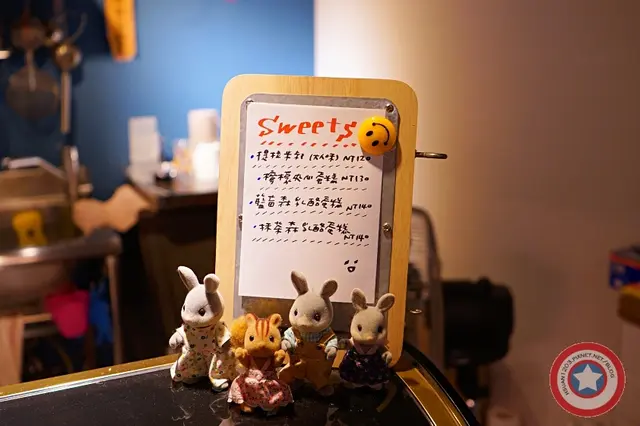 Sweets
・提拉米蘇 (大人味) NT120
・檸檬夾心蛋糕 NT130
・藍莓森乳酪蛋糕 NT140
・抹茶森乳酪蛋糕 NT140
PIXNET.NET/BLOG